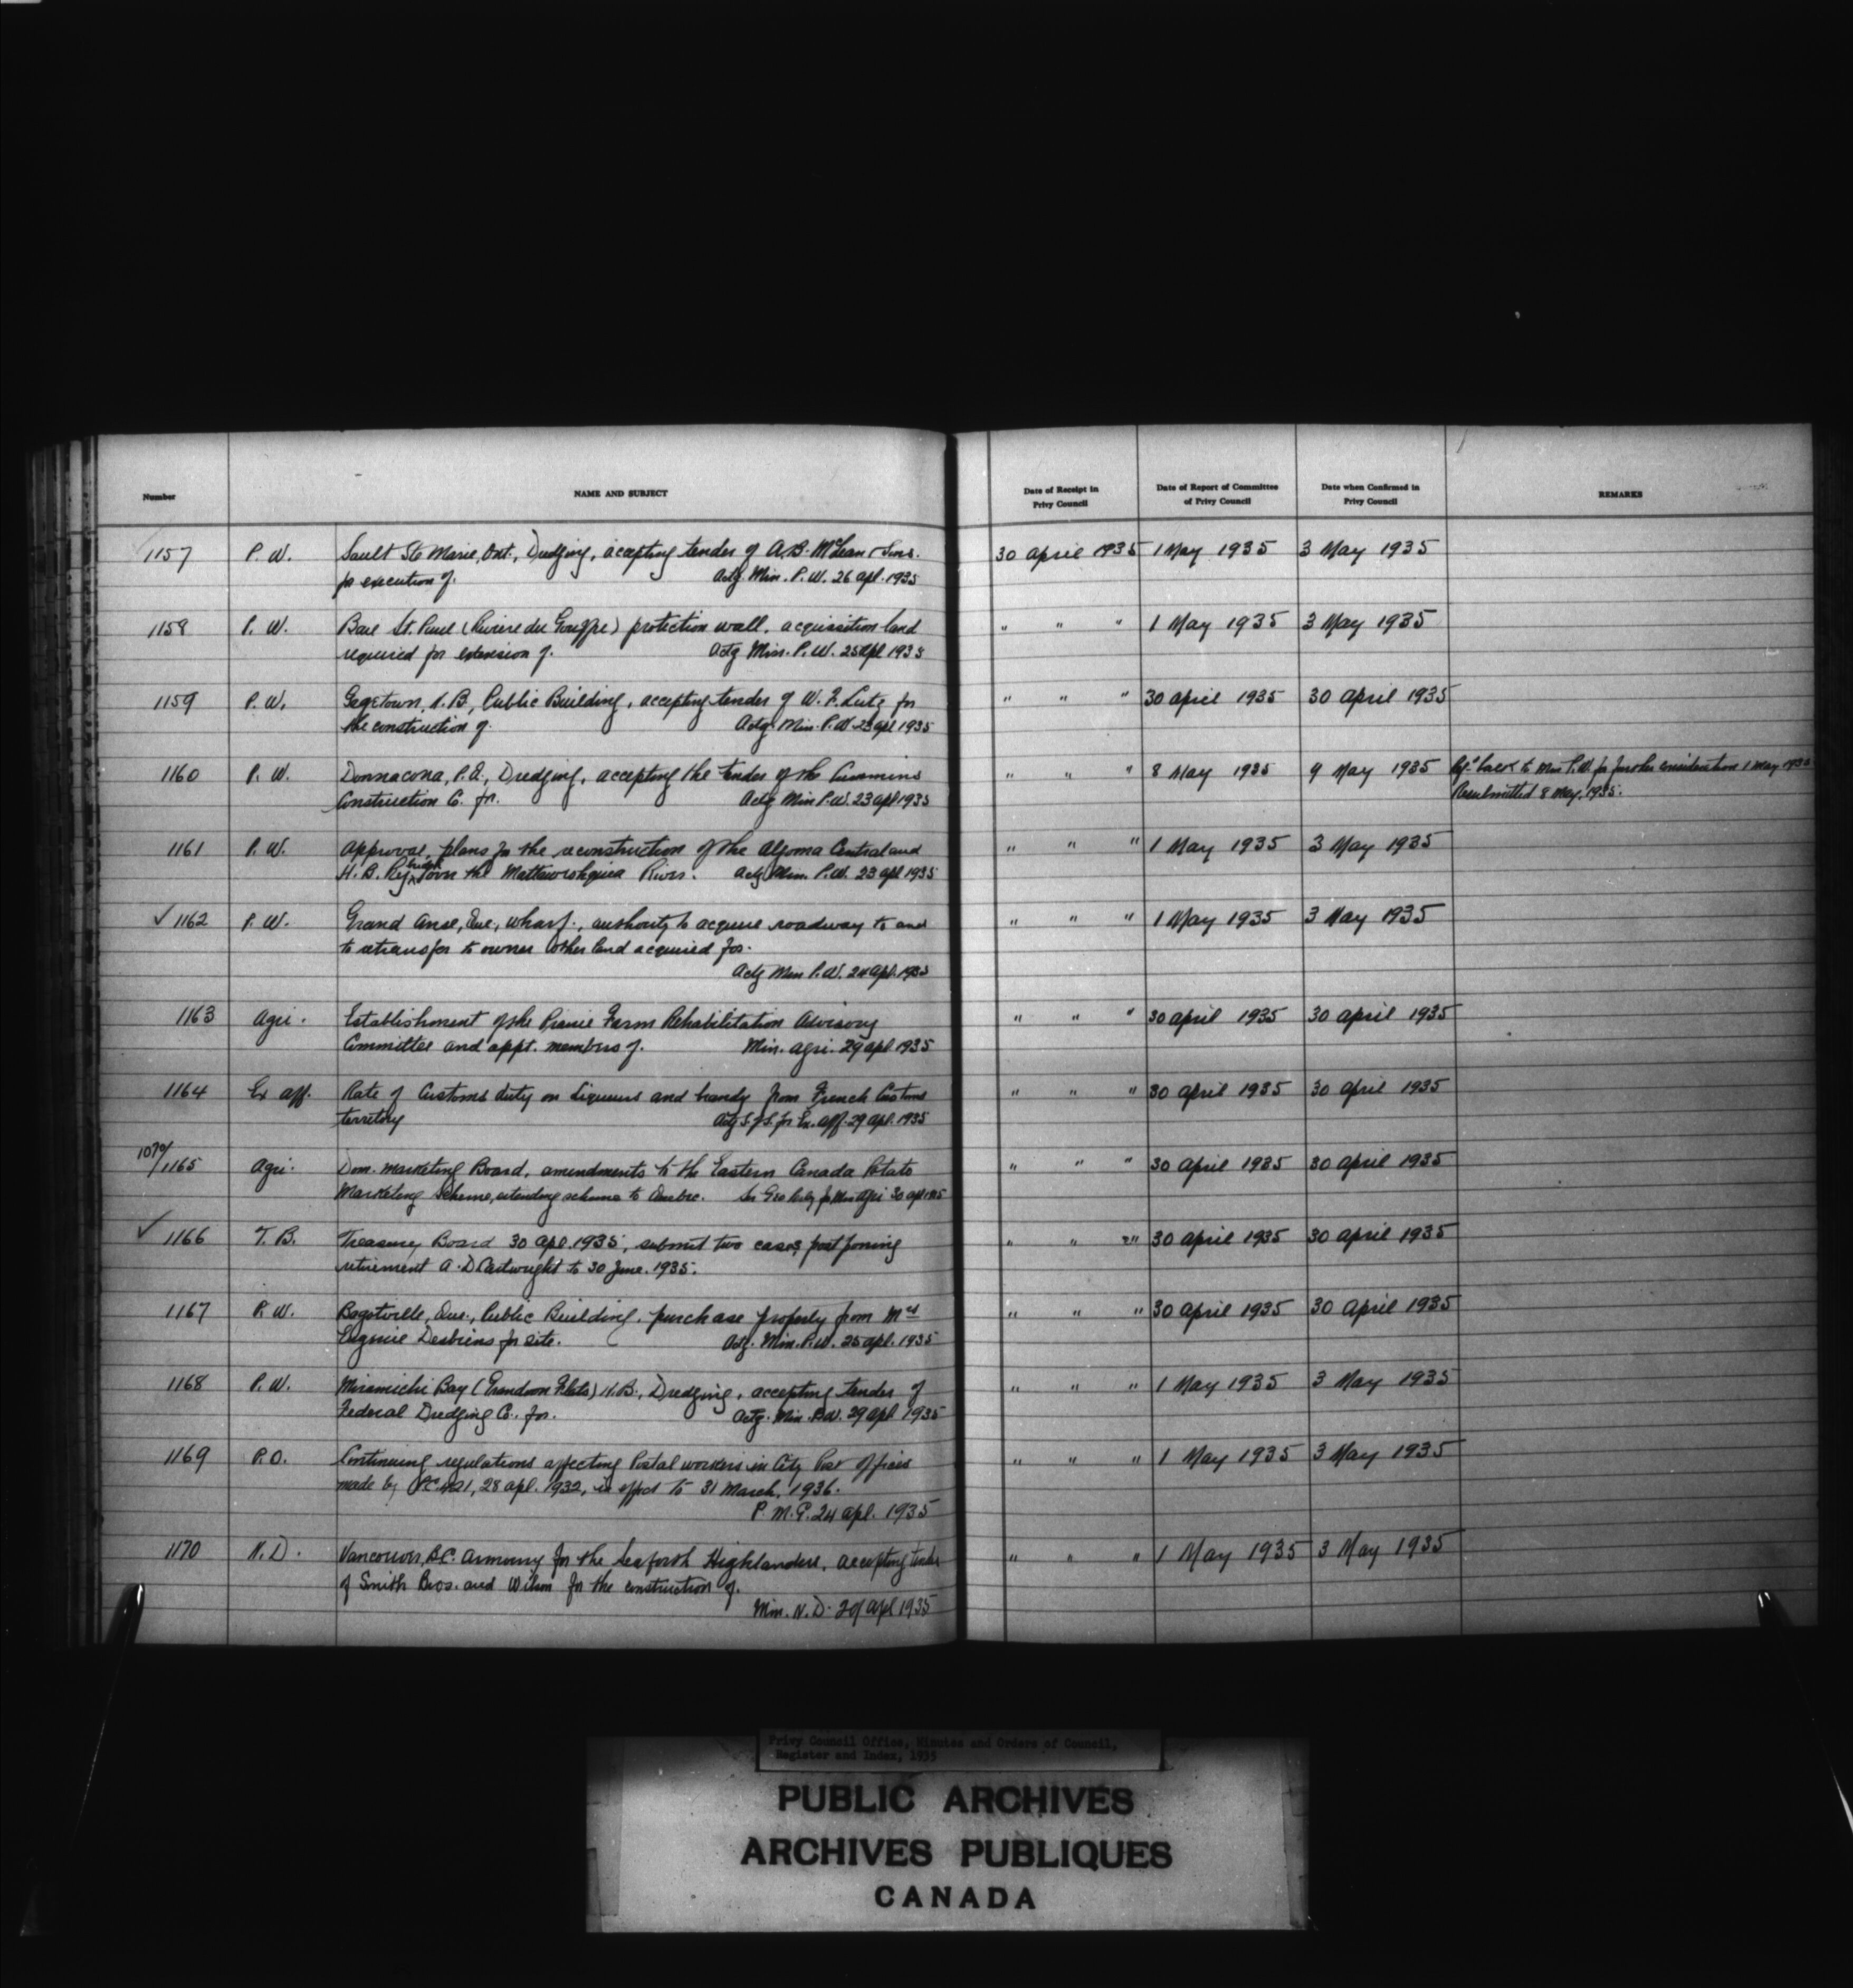 Number NAME AND SUBJECT Date of Receipt in Privy Council Date of Report of Committee of Privy Council Date when Confirmed in Privy Council REMARKS
1157 P. W. Sault Ste Marie, Ont., Dredging, accepting tender of A.B. McLean & Sons. 30 April 1935 1 May 1935 3 May 1935
for execution of. Actg. Min. P.W. 26 Apl. 1935
1158 P. W. Baie St. Paul (Riviere du Gouffre) protection wall, acquisition land " " " 1 May 1935 3 May 1935
required for extension of. Actg Min. P.W. 25 Apl 1935
1159 P. W. Gagetown, N.B., Public Building, accepting tender of W. F. Lutz for " " " 30 April 1935 30 April 1935
the construction of. Actg. Min. P.W. 23 Apl 1935
1160 P. W. Donnacona, P.Q., Dredging, accepting the tender of the Cummins " " " 8 May 1935 9 May 1935 back to Min P.W. for further consideration 1 May 1935
Construction Co. for. Actg Min P.W. 23 Apl 1935 Resubmitted 8 May, 1935.
1161 P. W. Approval, plans for the reconstruction of the Algoma Central and " " " 1 May 1935 3 May 1935
H. B. Rly bridge over the River. Actg Min. P.W. 23 Apl 1935
✓ 1162 P. W. Grand Anse, Que., wharf, authority to acquire roadway to and " " " 1 May 1935 3 May 1935
to retransfer to owner other land acquired for.
Actg Min P.W. 24 Apl. 1935
1163 Agri. Establishment of the Prairie Farm Rehabilitation Advisory " " " 30 April 1935 30 April 1935
Committee and appt. members of. Min. Agri. 29 Apl 1935
1164 Ex aff. Rate of Customs duty on liqueurs and brandy from French Customs " " " 30 April 1935 30 April 1935
territory Actg S. of S. for Ex. Aff. 29 Apl. 1935
1079/1165 Agri. Dom. Marketing Board, amendments to the Eastern Canada Potato " " " 30 April 1935 30 April 1935
Marketing Scheme, extending scheme to Quebec. Sir Geo Perley for Min Agri 30 Apl 1935
✓ 1166 T. B. Treasury Board 30 Apl. 1935, submit two cases, postponing " " " 30 April 1935 30 April 1935
retirement A. D. Cartwright to 30 June. 1935.
1167 P. W. Bagotville, Que., Public Building, purchase property from Mrs " " " 30 April 1935 30 April 1935
Eugenie Desbiens for site. Actg. Min. P.W. 25 Apl. 1935
1168 P. W. Miramichi Bay (Grandoon Flats) N.B., Dredging, accepting tender of " " " 1 May 1935 3 May 1935
Federal Dredging Co. for. Actg. Min. P.W. 29 Apl 1935
1169 P.O. Continuing regulations affecting Postal workers in City Post Offices " " " 1 May 1935 3 May 1935
made by P.C. 28 Apl. 1932, in effect to 31 March, 1936.
P. M. G. 24 Apl. 1935
1170 N. D. Vancouver, B.C. Armoury for the Seaforth Highlanders, accepting tender " " " 1 May 1935 3 May 1935
of Smith Bros. and Wilson for the construction of.
Min. N. D. Apl 1935
Privy Council Office, Minutes and Orders of Council,
Register and Index, 1935
PUBLIC ARCHIVES
ARCHIVES PUBLIQUES
CANADA